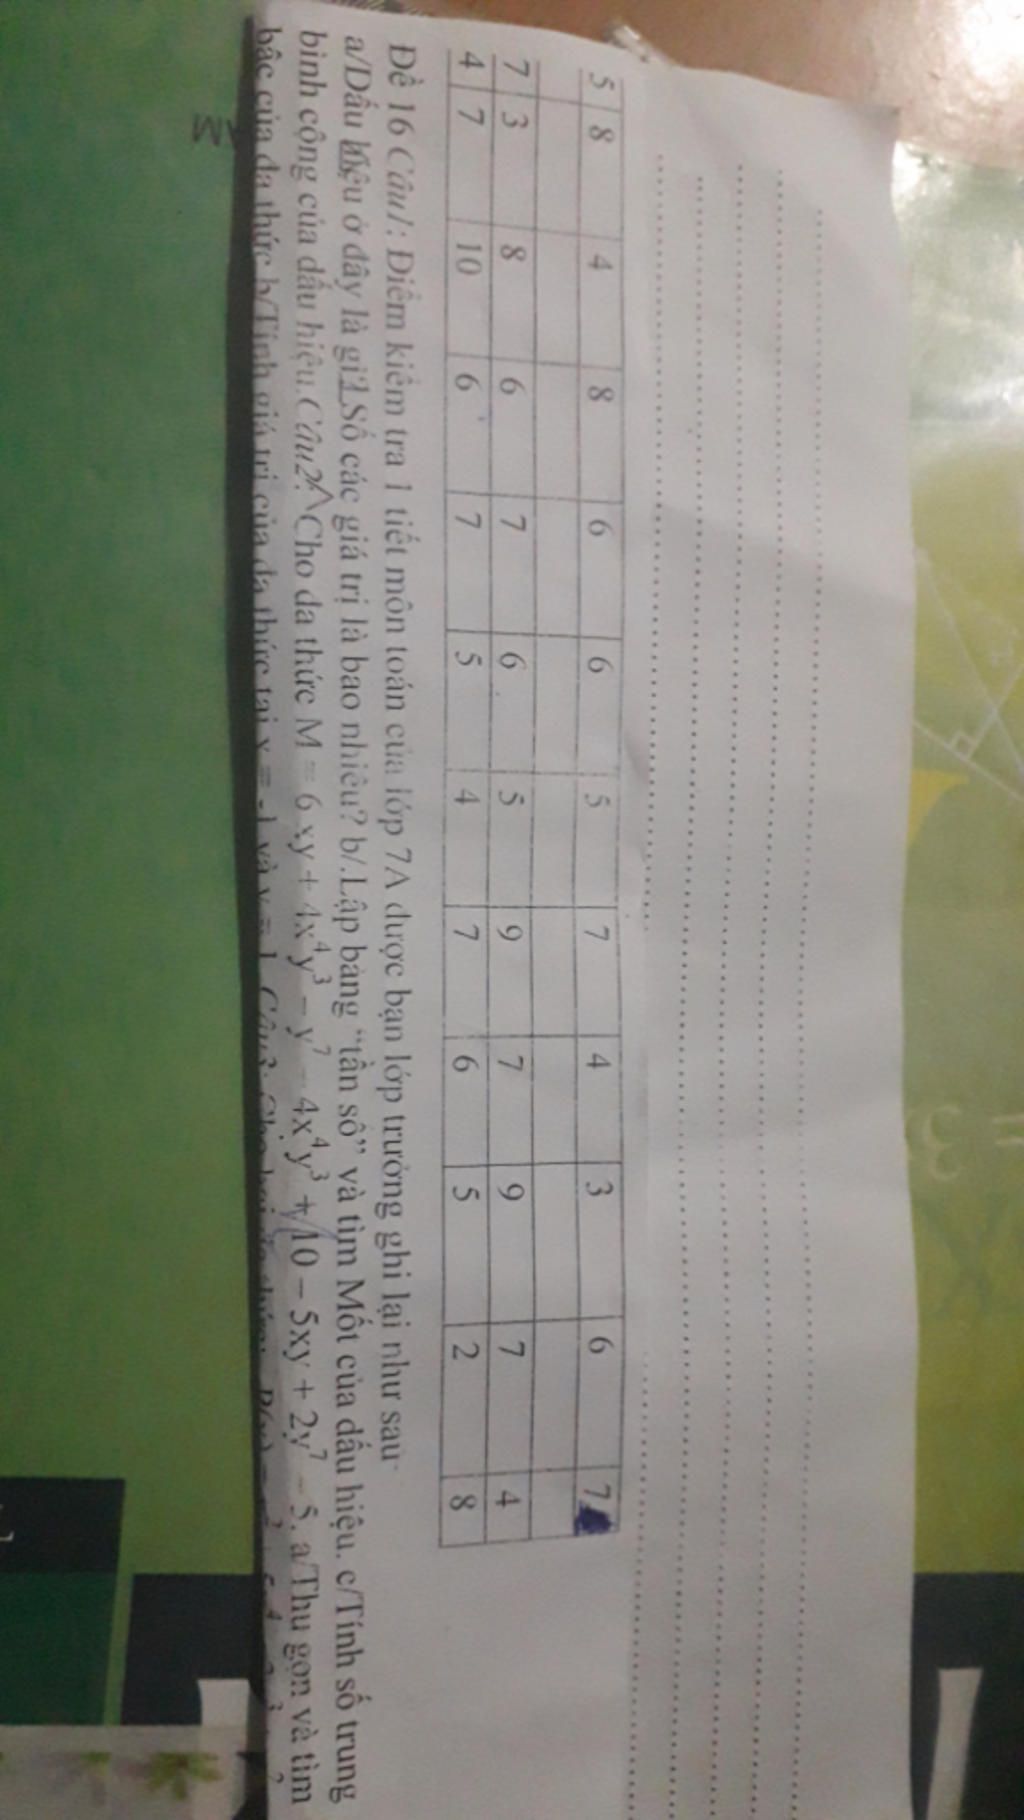 5 8 4 8 6 6 5 7 4 3 6 7
7 3 8 6 7 6 5 9 7 9 7 4
4 7 10 6 7 5 4 7 6 5 2 8
Đề 16 Câu1: Điểm kiểm tra 1 tiết môn toán của lớp 7A được bạn lớp trưởng ghi lại như sau
a/Dấu hiệu ở đây là gì? Số các giá trị là bao nhiêu? b/.Lập bảng “tần số” và tìm Mốt của dấu hiệu. c/Tính số trung
bình cộng của dấu hiệu.Câu2: Cho đa thức M = 6 xy + 4x⁴y³ – y⁷ – 4x⁴y³ + 10 – 5xy + 2y⁷ – 5. a/Thu gọn và tìm
bậc của đa thức b/Tính giá trị của đa thức tại x = -1 và y = 1 Câu3: Cho
M